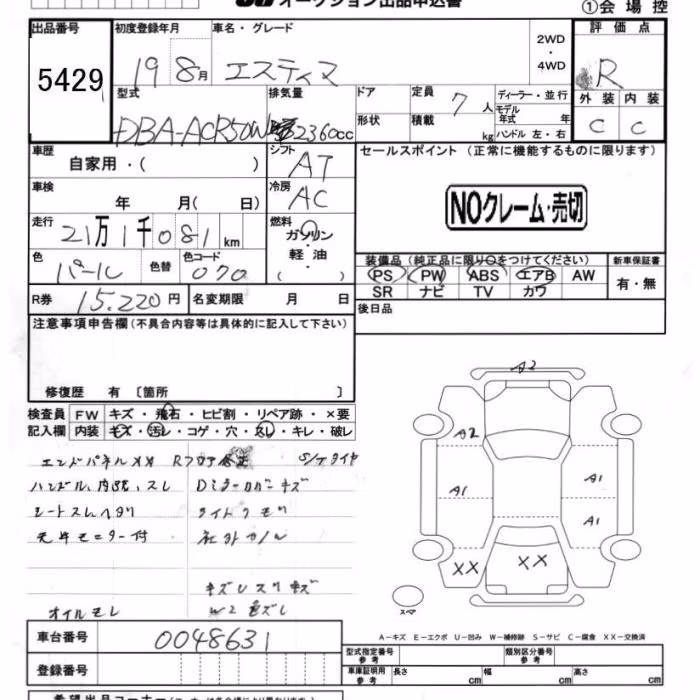 オークション出品申込書
①会場控
出品番号
初度登録年月
車名・グレード
2WD
・
4WD
評価点
5429
19 8月
エスティマ
R
型式
排気量
ドア
定員
7人
ディーラー・並行
外装 内装
DBA-ACR50W
2360cc
形状
積載
kg
モデル年式 年
ハンドル 左・右
C C
車歴
自家用・( )
シフト
AT
セールスポイント (正常に機能するものに限ります)
車検
年 月( 日)
冷房
AC
NOクレーム・売切
走行
21万1千081km
燃料
ガソリン・
軽油
・( )
色
パール
色替
色コード
070
装備品(純正品に限り○をつけてください)
新車保証書
PS PW ABS エアB AW
SR ナビ TV カワ
有・無
R券 15.220円
名変期限 月 日
後日品
注意事項申告欄(不具合内容等は具体的に記入して下さい)
修復歴 有 〔箇所 〕
検査員 FW キズ・飛石・ヒビ割・リペア跡・×要
記入欄 内装 キズ・汚レ・コゲ・穴・スレ・キレ・破レ
エンドパネルXX Rフロア修正 S/Tタイヤ
ハンドル、内張、スレ Dミラーカバーキズ
シートスレヘタリ ライトクモリ
天井モニター付 社外カノル
キズUスリキズ
オイルモレ W2色ズレ
A2
A2
A1
A1
A1
XX
XX
スペア
A-キズ E-エクボ U-凹み W-補修跡 S-サビ C-腐食 XX-交換済
車台番号
0048631
型式指定番号
参考
類別区分番号
参考
登録番号
車庫証明用
参考
長さ cm
幅 cm
高さ cm
希望出品コーナー